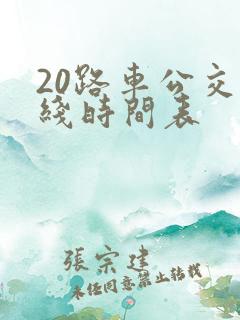 20路車公交
綫時間表
張宗建
未经同意禁止转载